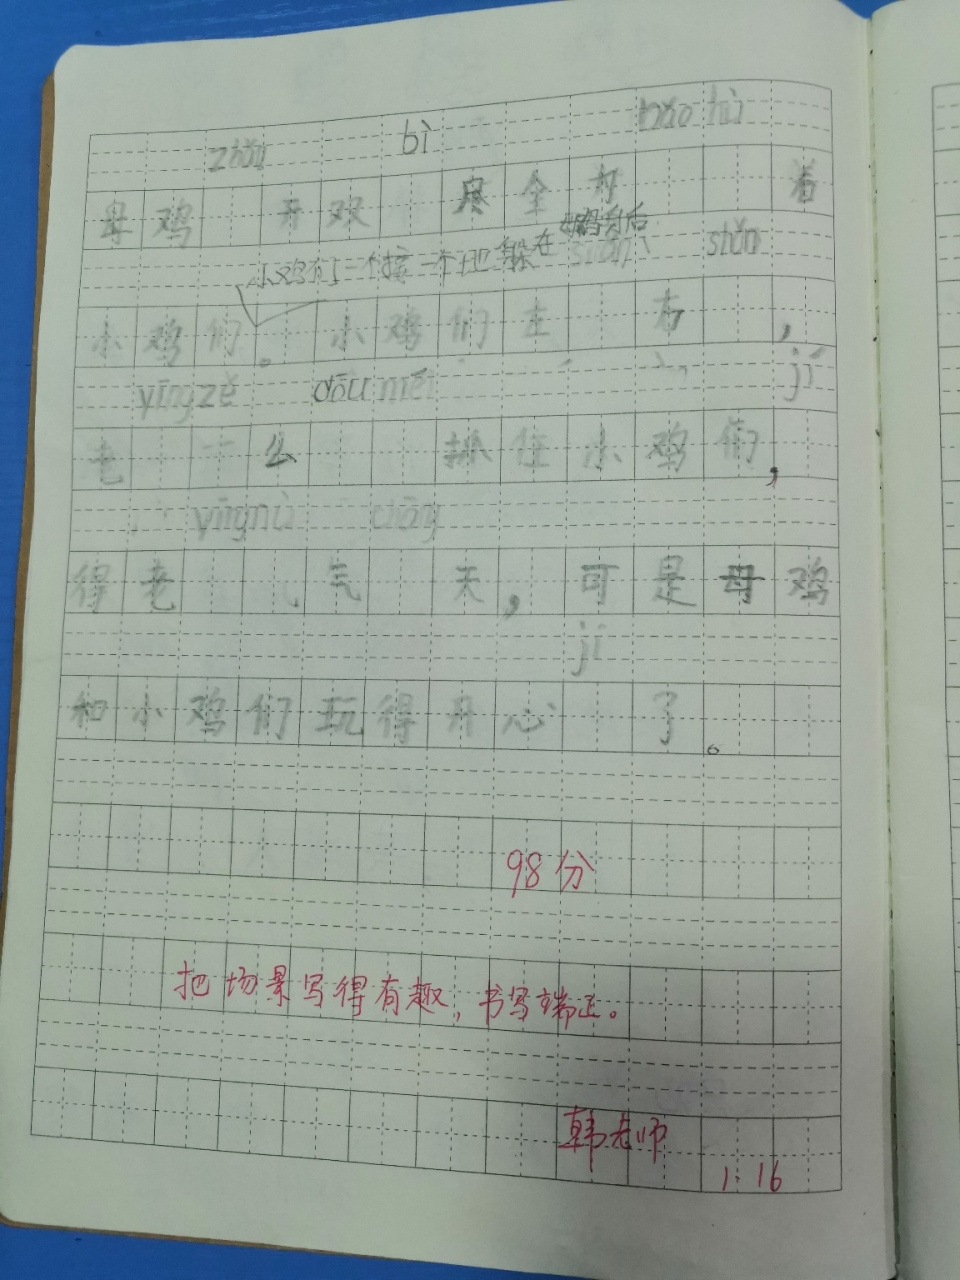 zhǎn bì bǎo hù
母鸡 开双 尽全力 着
小鸡有了一个接一个地躲在
shǎn
小鸡们。小鸡们左 右 ,
yīng zě dōu méi jí
老 么 抓住小鸡们,
yīng nù
得老 气 天,可是母鸡
jí
和小鸡们玩得开心 了。
98分
把场景写得有趣,书写端正。
韩老师
1.16